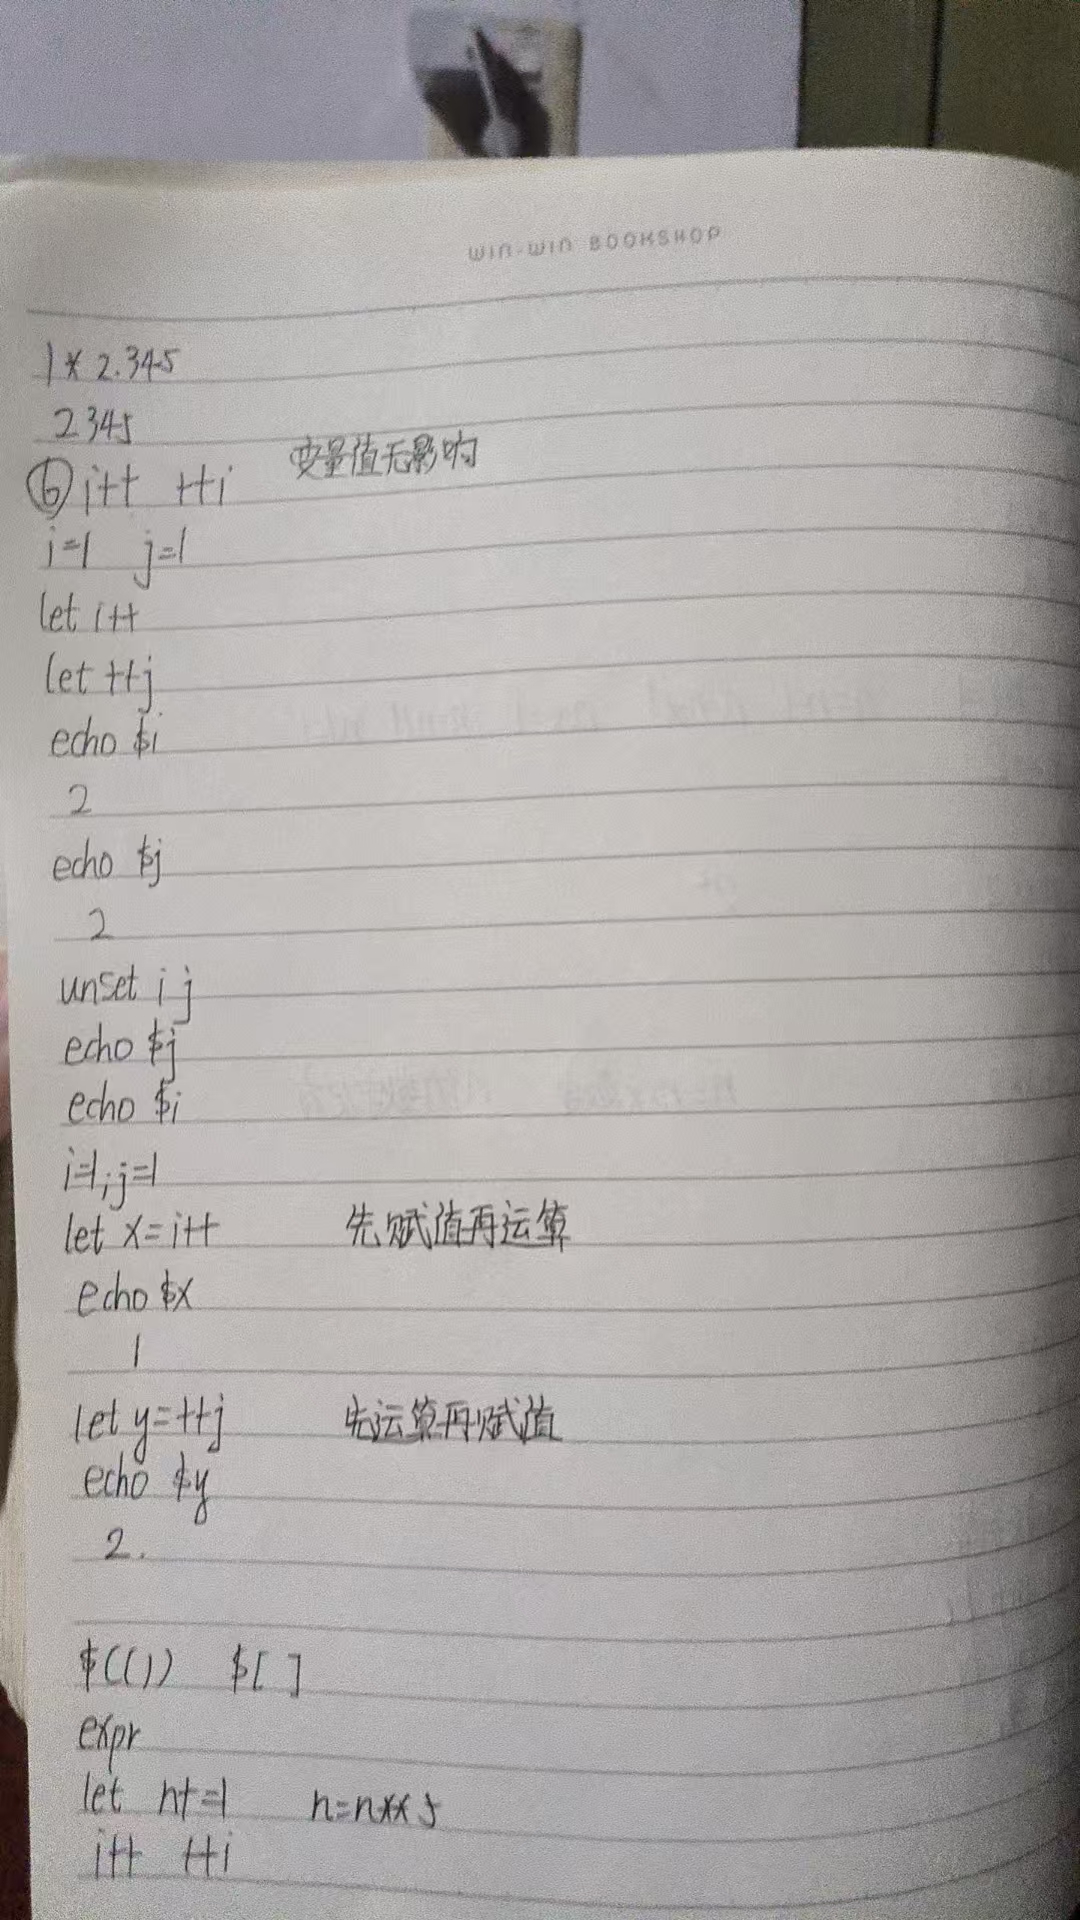 WIN-WIN BOOKSHOP
1* 2.345
2345
⑥ i++ ++i 变量值无影响
i=1 j=1
let i++
let ++j
echo $i
2
echo $j
2
unset i j
echo $j
echo $i
i=1;j=1
let x=i++ 先赋值再运算
echo $x
1
let y=++j 先运算再赋值
echo $y
2.
$(()) $[ ]
expr
let n+=1 n=n**5
i++ ++i